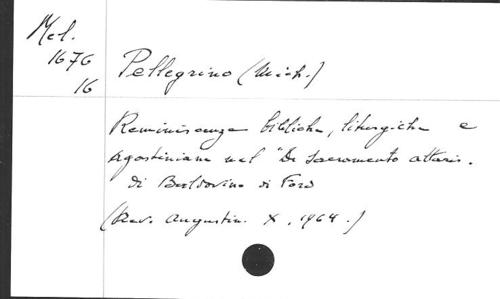 Mel.
1676
16
Pellegrino (Mich.)
Reminiscenze bibliche, liturgiche e
agostiniane nel "De Sacramento altaris.
di Baldovino di Ford
(Rev. Augustin. X, 1964.)